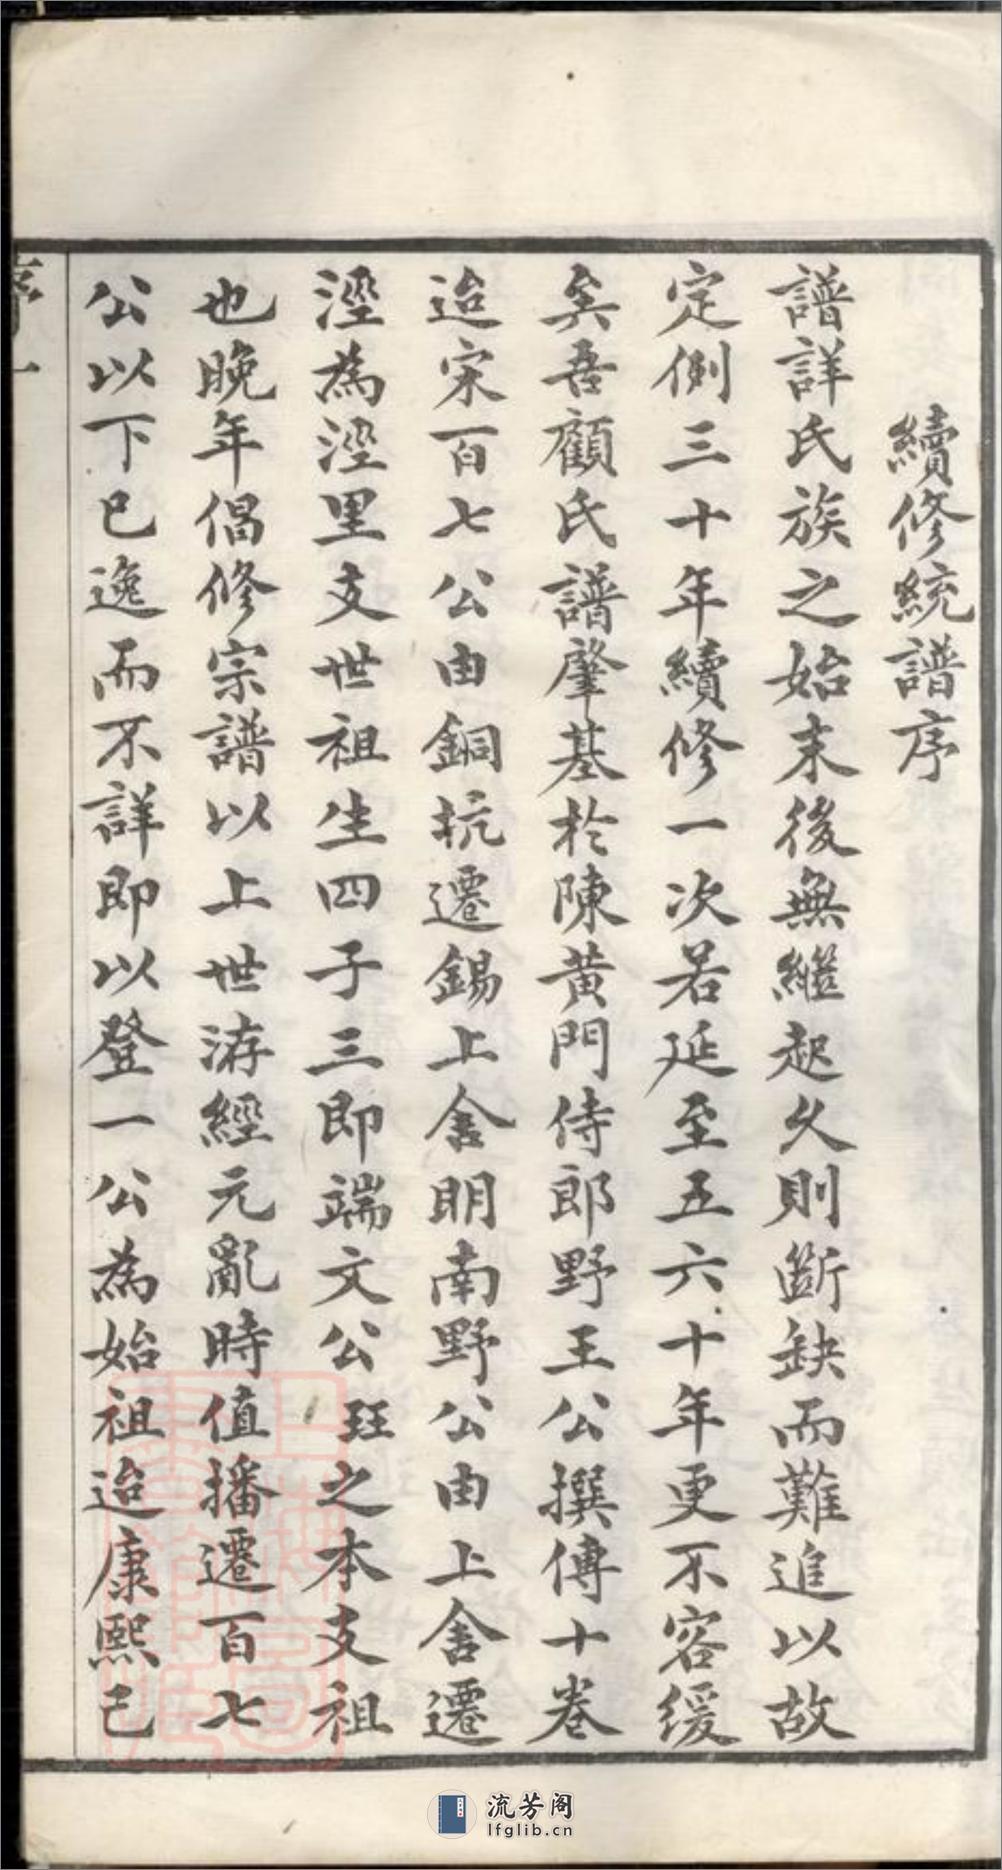 續修統譜序
譜詳氏族之始末後無繼起久則斷缺而難進以故
定例三十年續修一次若延至五六十年更不容緩
矣吾顧氏譜肇基於陳黃門侍郎野王公撰傳十卷
迨宋百七公由銅坑遷錫上舍明南野公由上舍遷
涇為涇里支世祖生四子三即端文公 之本支祖
也晚年倡修宗譜以上世洊經元亂時值播遷百七
公以下已逸而不詳即以登一公為始祖迨康熙己
序一
流芳阁
lfglib.cn